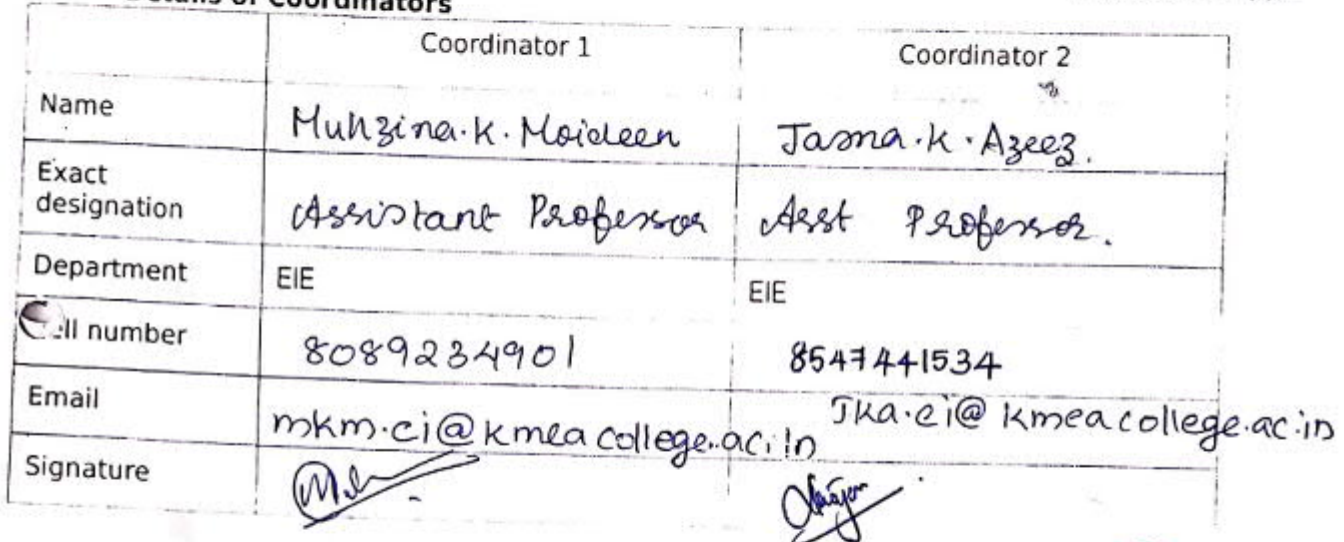 Details of Coordinators
Coordinator 1 Coordinator 2
Name Muhzina.K.Moideen Jasna.K.Azeez.
Exact
designation Assistant Professor Asst Professor.
Department EIE EIE
ell number 8089234901 8547441534
Email mkm.ei@kmeacollege.ac.in Jka.ei@kmeacollege.ac.in
Signature